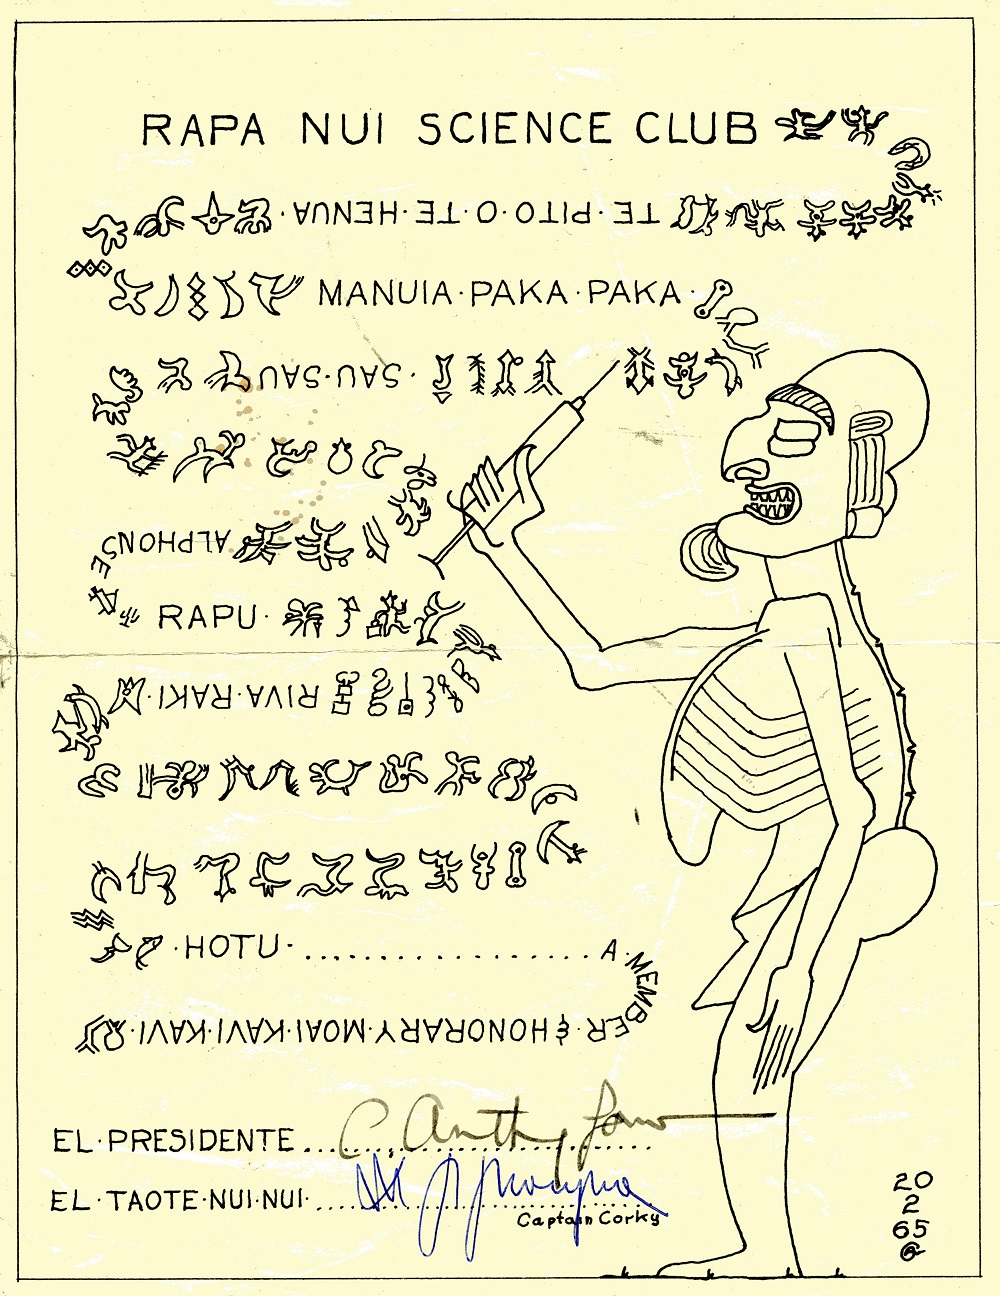 RAPA NUI SCIENCE CLUB
TE·PITO·O·TE·HENUA·
MANUIA·PAKA·PAKA·
·SAU·SAU
ALPHONSE
RAPU·
RIVA·RAKI·
·HOTU·.................A·MEMBER
& HONORARY·MOAI·KAVI·KAVI·
EL·PRESIDENTE
EL·TAOTE·NUI·NUI·
Captain Corky
20
2
65